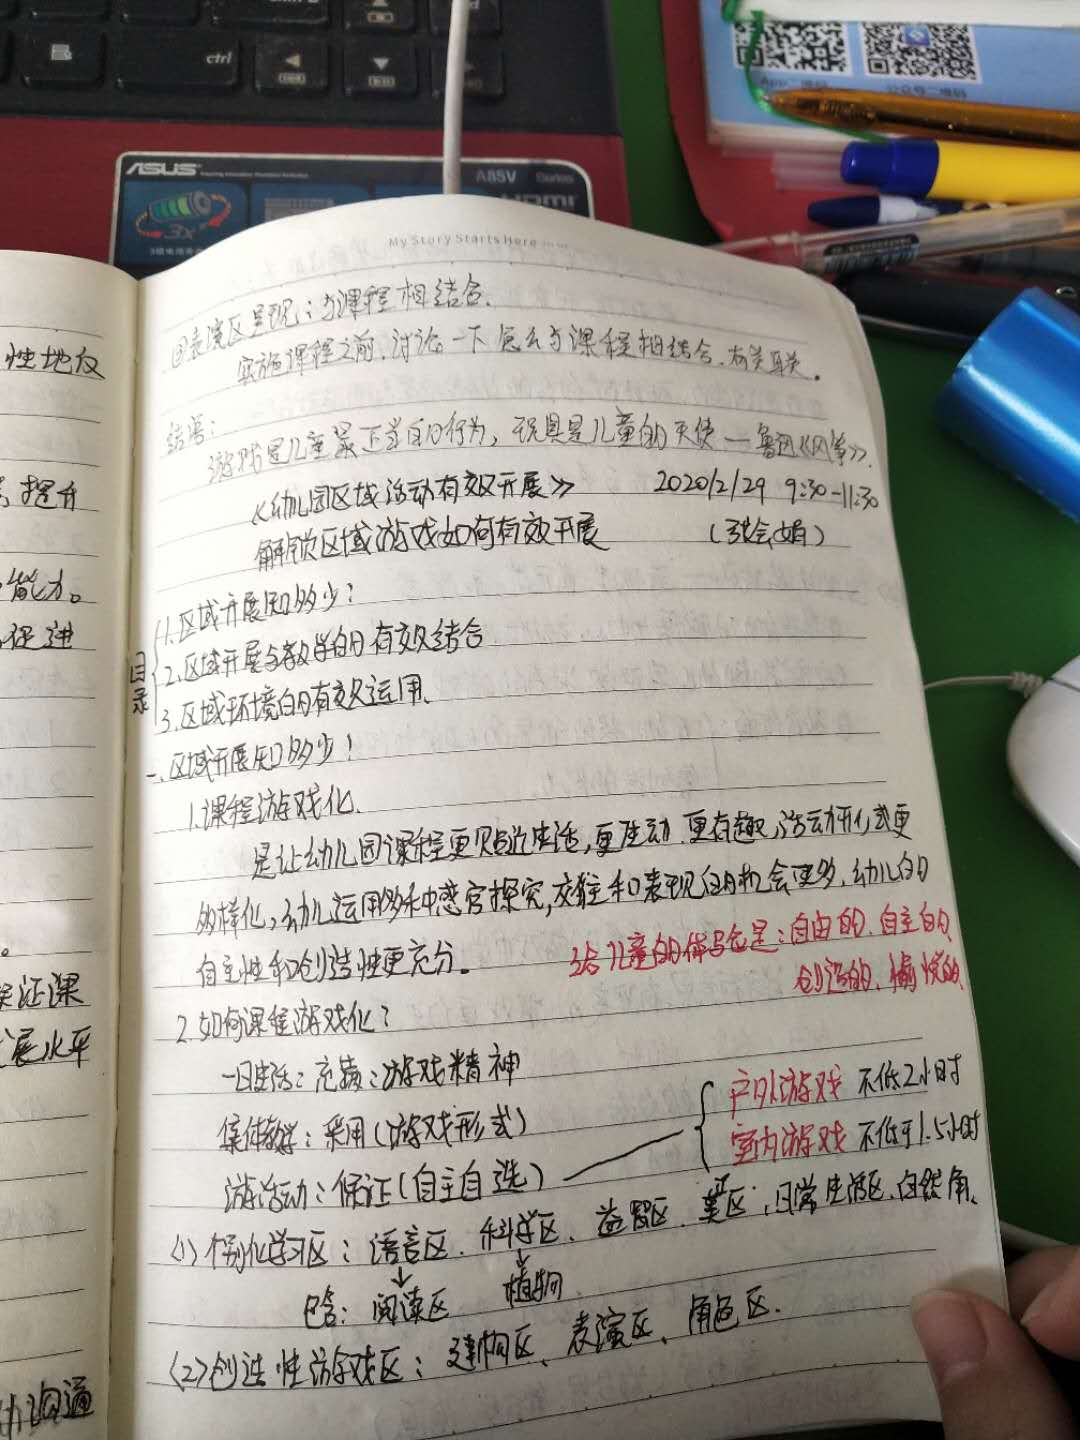 ctrl
ASUS
A85V Series
HDMI
3x
My Story Starts Here
性地
提升
能力。
促进
证课
展水平
沟通
③表演区呈现：与课程相结合.
实施课程之前,讨论一下怎么与课程相结合.有关联.
结语：
游戏是儿童最正当的行为，玩具是儿童的天使—鲁迅《风筝》.
《幼儿园区域活动有效开展》 2020/2/29 9:30-11:30
解锁区域游戏如何有效开展 (张会娟)
目录
1.区域开展知多少?
2.区域开展与教学的有效结合
3.区域环境的有效运用.
一、区域开展知多少!
1.课程游戏化.
是让幼儿园课程更贴近生活,更生动.更有趣,活动形式更
多样化,幼儿运用多种感官探究,交往和表现的机会更多.幼儿的
自主性和创造性更充分。
给儿童的体验应是：自由的.自主的、
创造的、愉悦的.
2.如何课程游戏化?
一日生活：充满：游戏精神
集体教学：采用(游戏形式)
游戏活动：保证(自主自选)
户外游戏 不低2小时
室内游戏 不低于1.5小时
(1)个别化学习区：语言区.科学区、益智区.美区,日常生活区.自然角.
包含：阅读区 植物
(2)创造性游戏区：建构区、表演区、角色区.